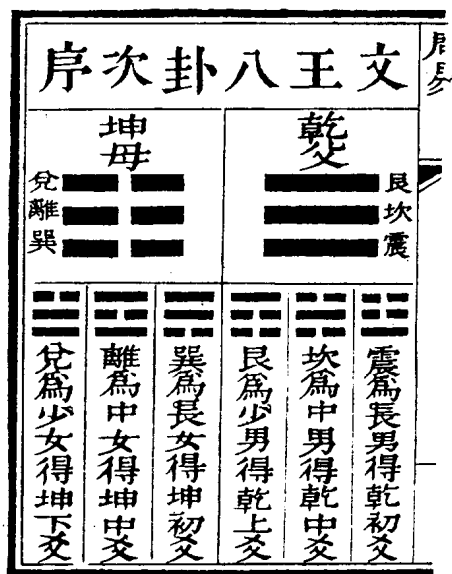 周易
文王八卦次序
乾父
艮
坎
震
坤母
兌
離
巽
震爲長男得乾初爻
坎爲中男得乾中爻
艮爲少男得乾上爻
巽爲長女得坤初爻
離爲中女得坤中爻
兌爲少女得坤下爻